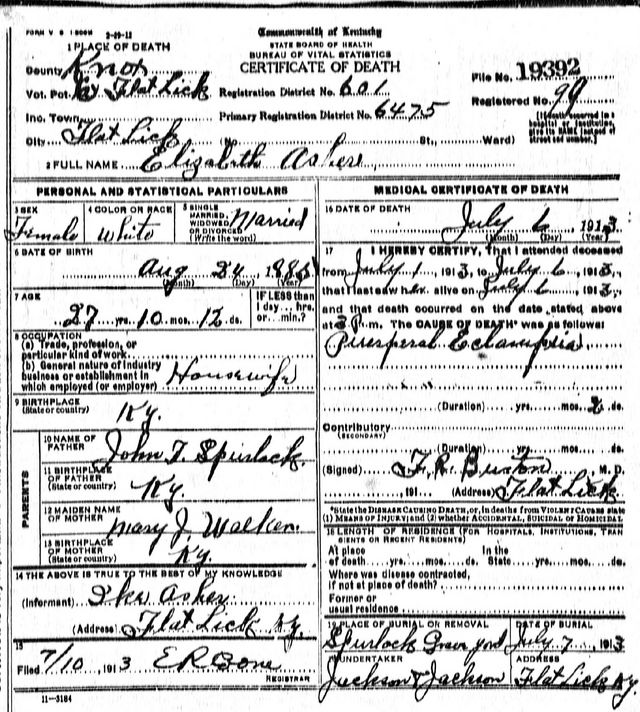 FORM V S 1 500M 3-29-12
Commonwealth of Kentucky
STATE BOARD OF HEALTH
BUREAU OF VITAL STATISTICS
CERTIFICATE OF DEATH
1 PLACE OF DEATH
County Knox
File No. 19392
Vot. Pct. Flat Lick Registration District No. 601
Registered No. 99
Inc. Town Primary Registration District No. 6475
[If death occurred in a hospital or institution, give its NAME instead of street and number.]
City Flat Lick (No. St., Ward)
2 FULL NAME Elizabeth Asher
PERSONAL AND STATISTICAL PARTICULARS
3 SEX
Female
4 COLOR OR RACE
White
5 SINGLE MARRIED, WIDOWED OR DIVORCED (Write the word)
Married
6 DATE OF BIRTH
Aug 24, 1885
(Month) (Day) (Year)
7 AGE
27 yrs. 10 mos. 12 ds.
IF LESS than 1 day... hrs. or... min.?
8 OCCUPATION
(a) Trade, profession, or
particular kind of work
(b) General nature of industry
business or establishment in
which employed (or employer) Housewife
9 BIRTHPLACE
(State or country) Ky.
PARENTS
10 NAME OF FATHER
John T. Spurlock
11 BIRTHPLACE OF FATHER
(State or country) Ky.
12 MAIDEN NAME OF MOTHER
Mary J. Walker
13 BIRTHPLACE OF MOTHER
(State or country) Ky
14 THE ABOVE IS TRUE TO THE BEST OF MY KNOWLEDGE
(Informant) Ike Asher
(Address) Flat Lick Ky.
15
Filed 7/10, 1913 E R Bone
REGISTRAR
11-3184
MEDICAL CERTIFICATE OF DEATH
16 DATE OF DEATH
July 6, 1913
(Month) (Day) (Year)
17 I HEREBY CERTIFY, That I attended deceased
from July 1, 1913, to July 6, 1913,
that I last saw her alive on July 6, 1913,
and that death occurred on the date stated above
at 3 P.m. The CAUSE OF DEATH* was as follows:
Puerperal Eclampsia
(Duration) yrs. mos. 2 ds.
Contributory
(SECONDARY)
(Duration) yrs. mos. ds.
(Signed) F. R. Burton M. D.
, 191 (Address) Flat Lick
*State the DISEASE CAUSING DEATH, or, in deaths from VIOLENT CAUSES state
(1) MEANS OF INJURY; and (2) whether ACCIDENTAL, SUICIDAL or HOMICIDAL.
18 LENGTH OF RESIDENCE (FOR HOSPITALS, INSTITUTIONS, TRANSIENTS OR RECENT RESIDENTS)
At place of death yrs. mos. ds. In the State yrs. mos. ds.
Where was disease contracted,
if not at place of death?
Former or
usual residence
19 PLACE OF BURIAL OR REMOVAL
Spurlock Grave yard
DATE OF BURIAL
July 7, 1913
20 UNDERTAKER
Jackson & Jackson
ADDRESS
Flat Lick Ky.